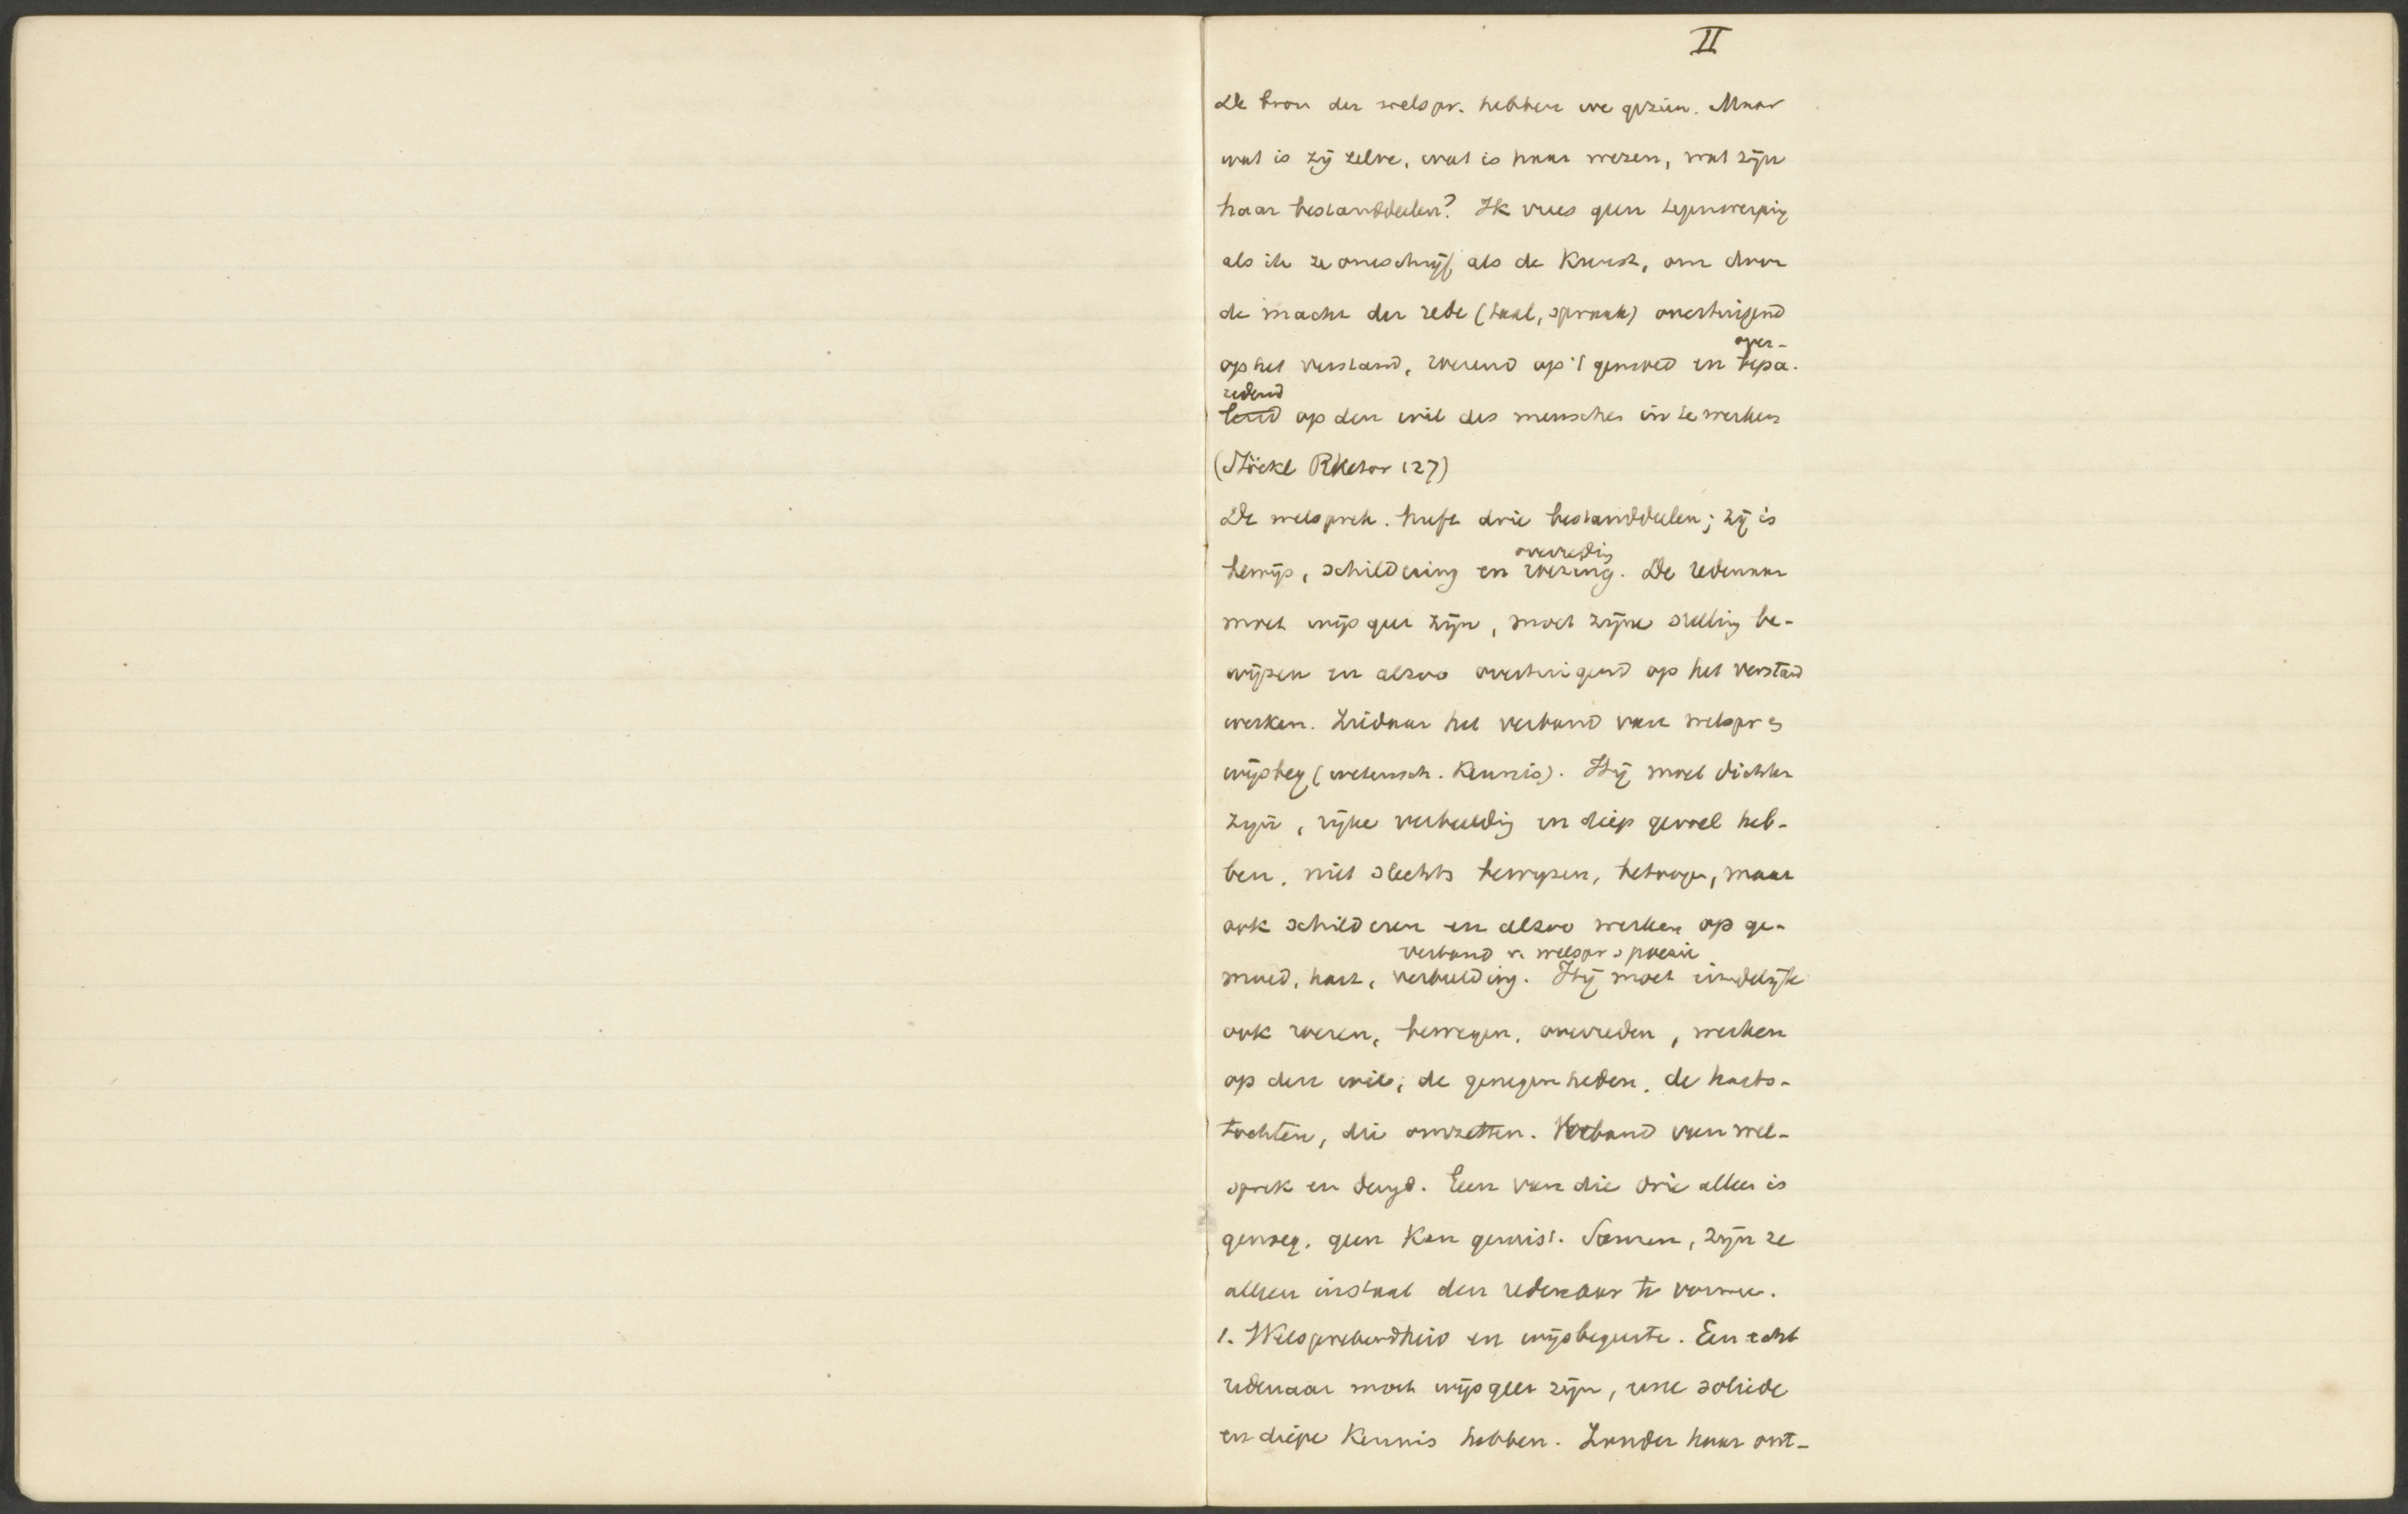 II
De bron der welspr. hebben we gezien. Maar
wat is zij zelve, wat is haar wezen, wat zijn
haar bestanddeelen? Ik vrees geen tegenwerping
als ik ze omschrijf als de Kunst, om door
de macht der rede (taal, spraak) overtuigend
op het verstand, roerend op 't gemoed en bepa-
over-
lend op den wil des menschen in te werken
redend
(Stöckl Rhetor 127)
De welsprek. heeft drie bestanddeelen; zij is
bewijs, schildering en roering. De redenaar
overreding
moet wijsgeer zijn, moet zijne stelling be-
wijzen en alzoo overtuigend op het verstand
werken. Ziedaar het verband van welspr en
wijsbeg (wetensch. Kennis). Hij moet dichter
zijn, rijke verbeelding en diep gevoel heb-
ben, niet slechts bewijzen, betoogen, maar
ook schilderen en alzoo werken op ge-
verband v. welspr en poezie
moed, hart, verbeelding. Hij moet eindelijk
ook roeren, bewegen, overreden, werken
op den wil, de genegenheden, de harts-
tochten, die omzetten. Verband van wel-
sprek en deugd. Een van die drie alleen is
genoeg, geen Kan gemist. Samen, zijn ze
alleen instaat den redenaar te vormen.
1. Welsprekendheid en wijsbegeerte. Een echt
redenaar moet wijsgeer zijn, eene solide
en diepe Kennis hebben. Zonder haar ont-